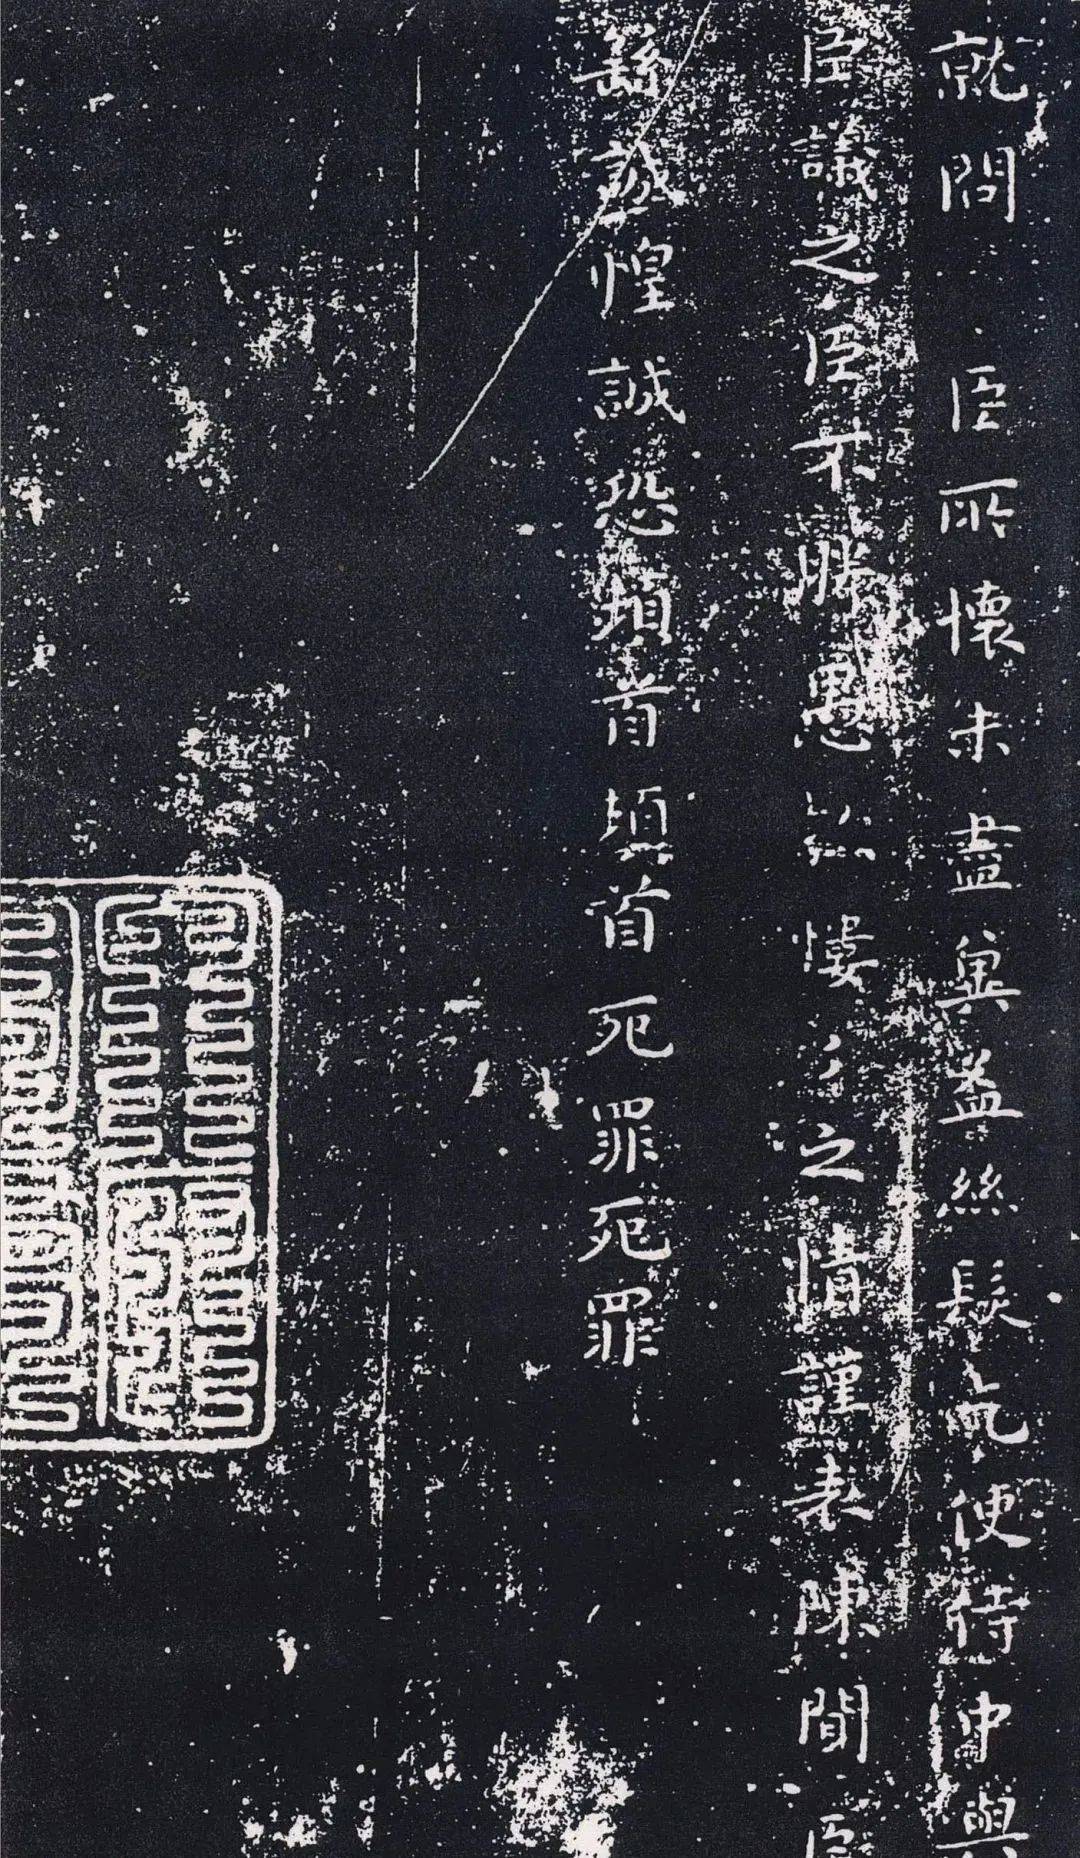 就問 臣所懷未盡冀益絲髮气使侍中與
臣議之臣不勝愚以慺〻之情謹表陳聞臣
繇誠惶誠恐頓首頓首死罪死罪